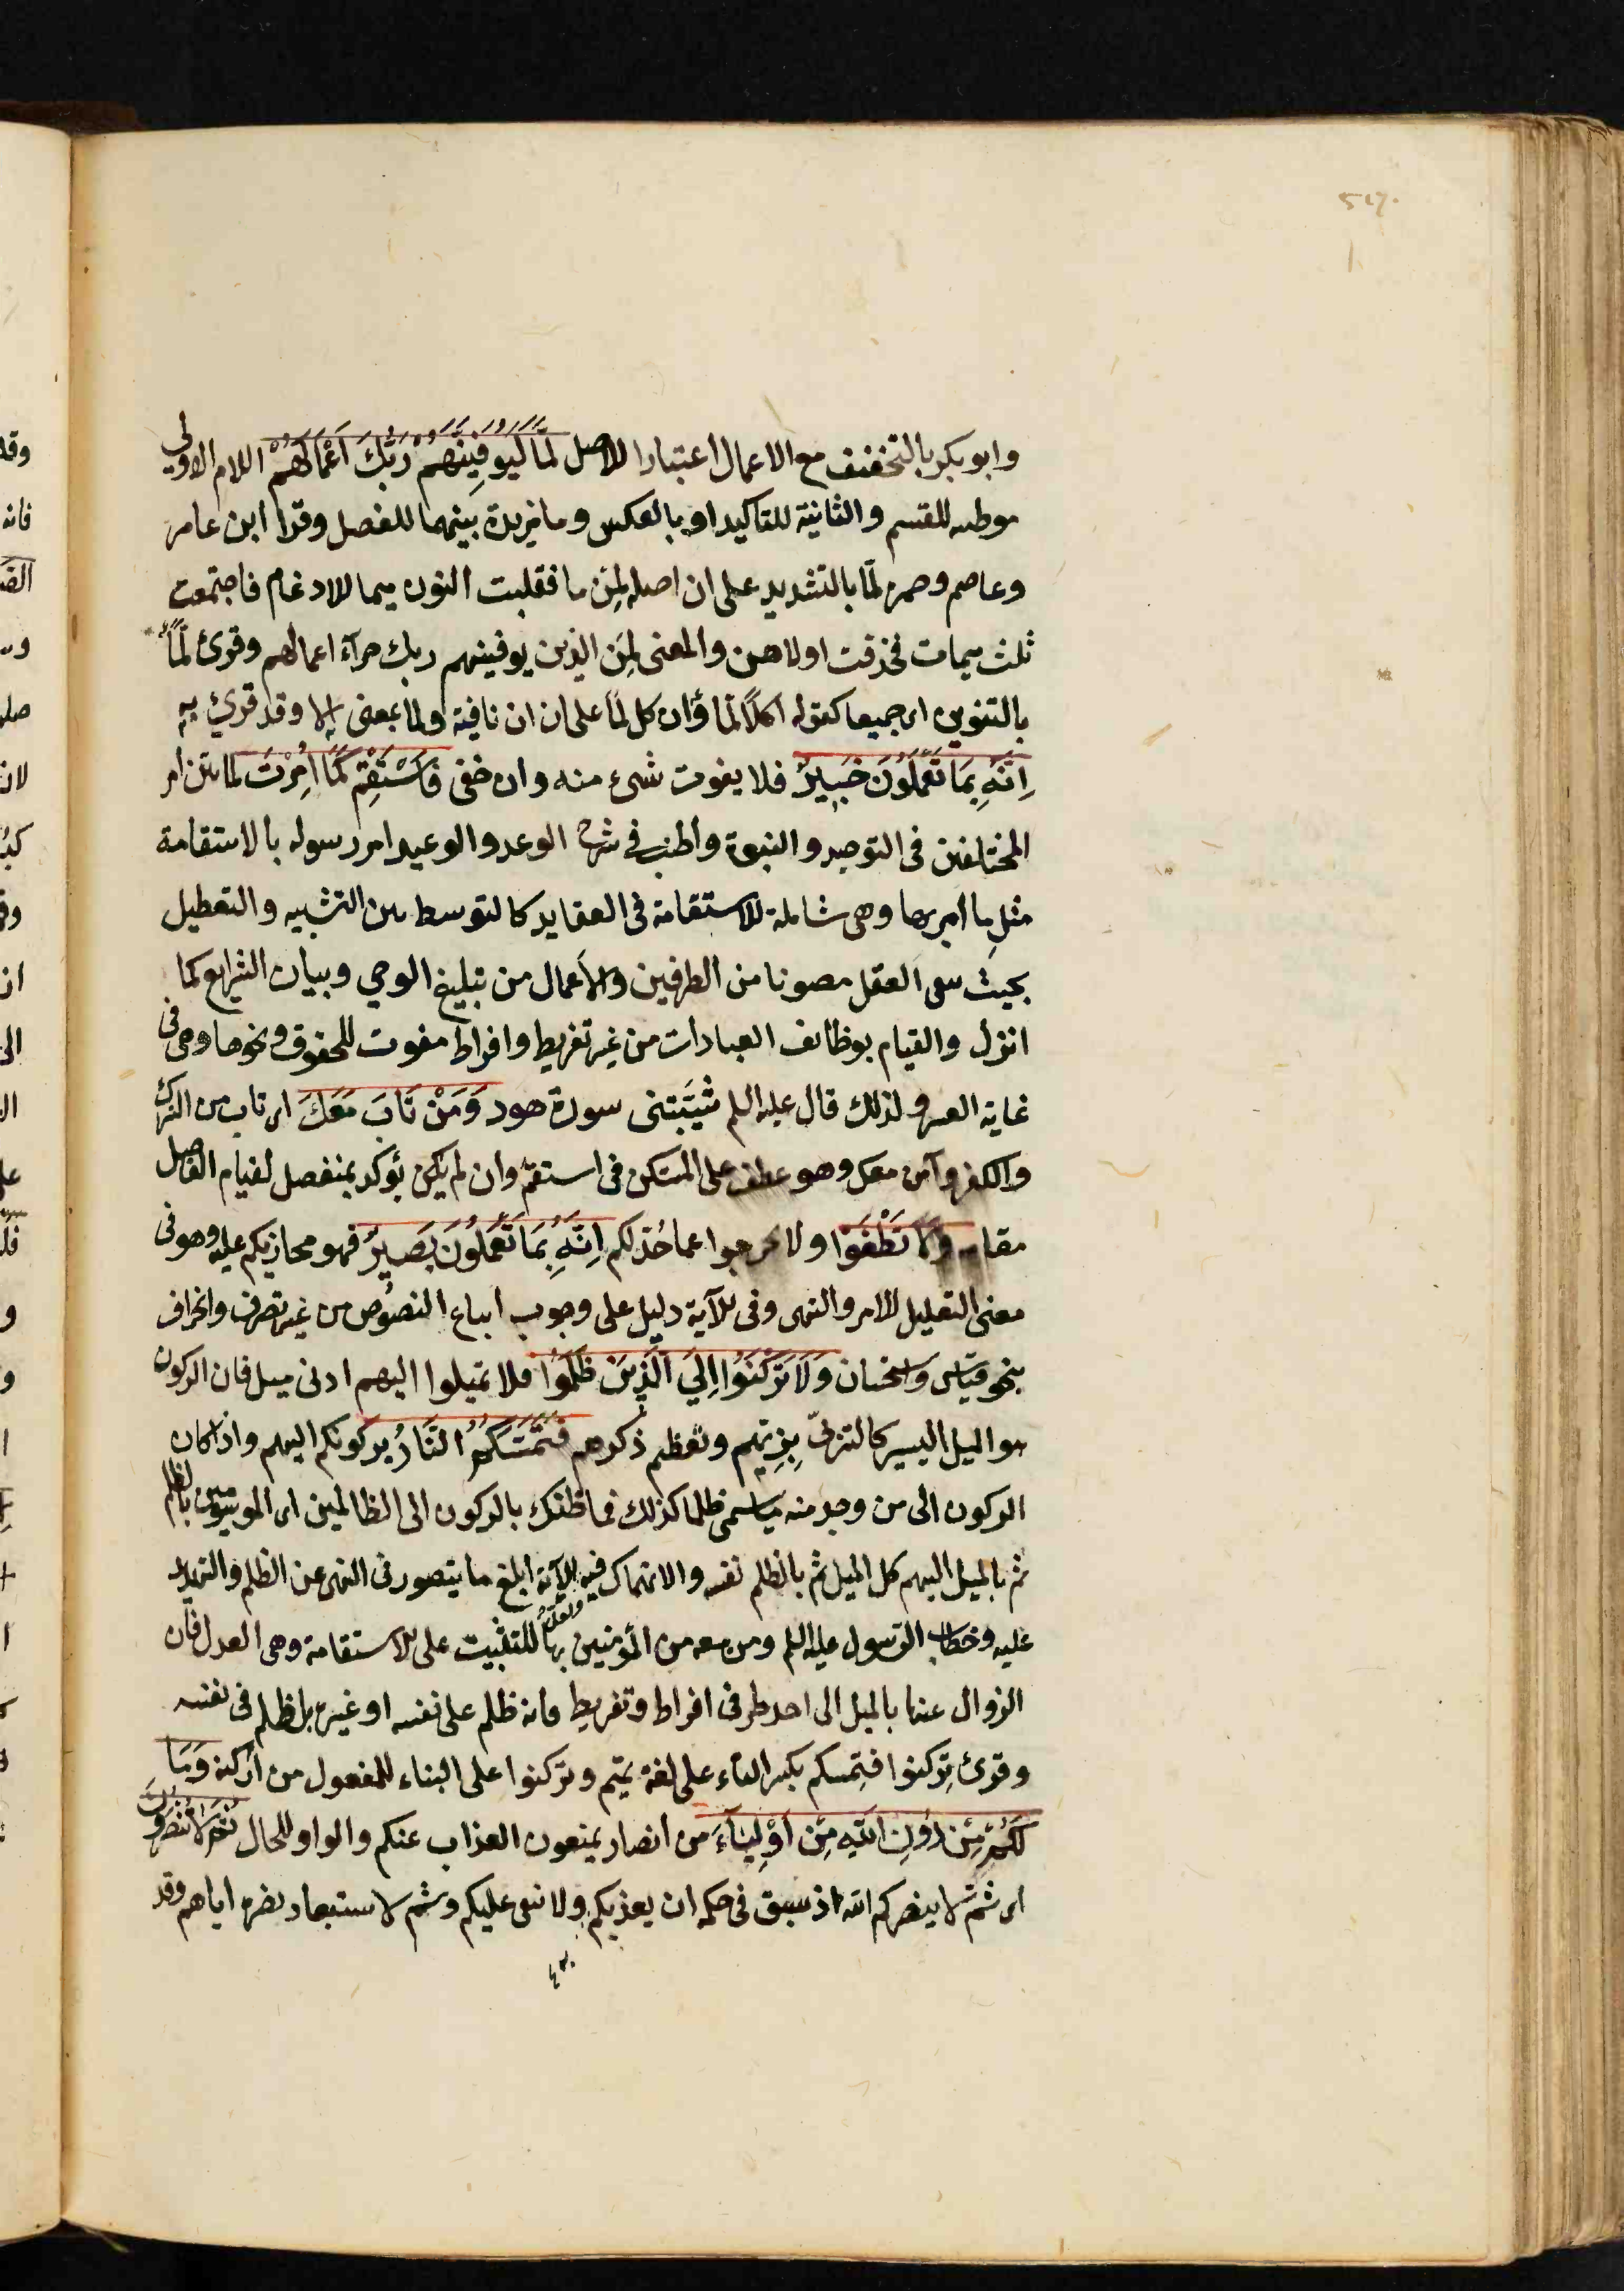 وابو بكر بالتخفيف مع الاعمال اعتبارا للاصل لَمَّا لَيُوَفِّيَنَّهُمْ رَبُّكَ اَعْمَالَهُمْ اللام الاولى
موطئه للقسم والثانية للتاكيد او بالعكس وما مزيدة بينهما للفصل وقرا ابن عامر
وعاصم وحمزه لمّا بالتشديد على ان اصله لمن ما فقلبت النون ميما للادغام فاجتمعت
ثلث ميمات فحذفت اولاهن والمعنى لمن الذين يوفينهم ربك جزآء اعمالهم وقرئ لمًّا
بالتنوين اى جميعا كقوله اكلًا لمًّا وان كل لمّا على ان ان نافية ولمّا بمعنى الا وقد قرئ به
اِنَّهُ بِمَا تَعْمَلُونَ خَبِيرٌ فلا يفوت شىء منه وان خفى فَاسْتَقِمْ كَمَا اُمِرْتَ لما بين امر
المختلفين فى التوحيد والنبوة واطنب فى شرح الوعد والوعيد امر رسوله بالاستقامة
مثل ما امر بها وهى شاملة للاستقامة فى العقايد كالتوسط بين التشبيه والتعطيل
بحيث يبقى العقل مصونا من الطرفين والاعمال من تبليغ الوحى وبيان الشرايع كما
انزل والقيام بوظائف العبادات من غير تفريط وافراط مفوت للحقوق ونحوها وهى فى
غاية العسر ولذلك قال عليه السلم شيّبتنى سورة هود وَمَنْ تَابَ مَعَكَ اى تاب من الشرك
والكفر وآمن معك وهو عطف على المستكن فى استقم وان لم يكن يؤكد بمنفصل لقيام الفاصل
مقامه وَلَا تَطْغَوْا ولا تخرجوا عما حُدّ لكم اِنَّهُ بِمَا تَعْمَلُونَ بَصِيرٌ فهو مجازيكم عليه وهو فى
معنى التعليل للامر والنهى وفى الآية دليل على وجوب اتباع النصوص من غير تصرف وانحراف
بنحو قياس واستحسان وَلَا تَرْكَنُوا اِلَى الَّذِينَ ظَلَمُوا فلا تميلوا اليهم ادنى ميل فان الركون
هو الميل اليسير كالتزيّى بزيّهم وتعظيم ذكرهم فَتَمَسَّكُمُ النَّارُ بركونكم اليهم واذا كان
الركون الى من وجد منه ما يسمى ظلما كذلك فما ظنك بالركون الى الظالمين اى الموسومين بالظلم
ثم بالميل اليهم كل الميل ثم بالظلم نفسه والانهماك فيه ولعل الآية ابلغ ما يتصور فى النهى عن الظلم والتهديد
عليه وخطاب الرسول عليه السلم ومن معه من المؤمنين بها للتثبيت على الاستقامة وهى العدل فان
الزوال عنها بالميل الى احد طرفى افراط وتفريط فانه ظلم على نفسه او غيره بل ظلم فى نفسه
وقرئ تِركنوا فتِمسكم بكسر التاء على لغة تميم وتُركنوا على البناء للمفعول من اركنه وَمَا
لَكُمْ مِنْ دُونِ اللّٰهِ مِنْ اَوْلِيَاءَ من انصار يمنعون العذاب عنكم والواو للحال ثُمَّ لَا تُنْصَرُونَ
اى ثم لا ينصركم الله اذ سبق فى حكمه ان يعذبكم ولا يبقى عليكم وثم لاستبعاد نصره اياهم وقد